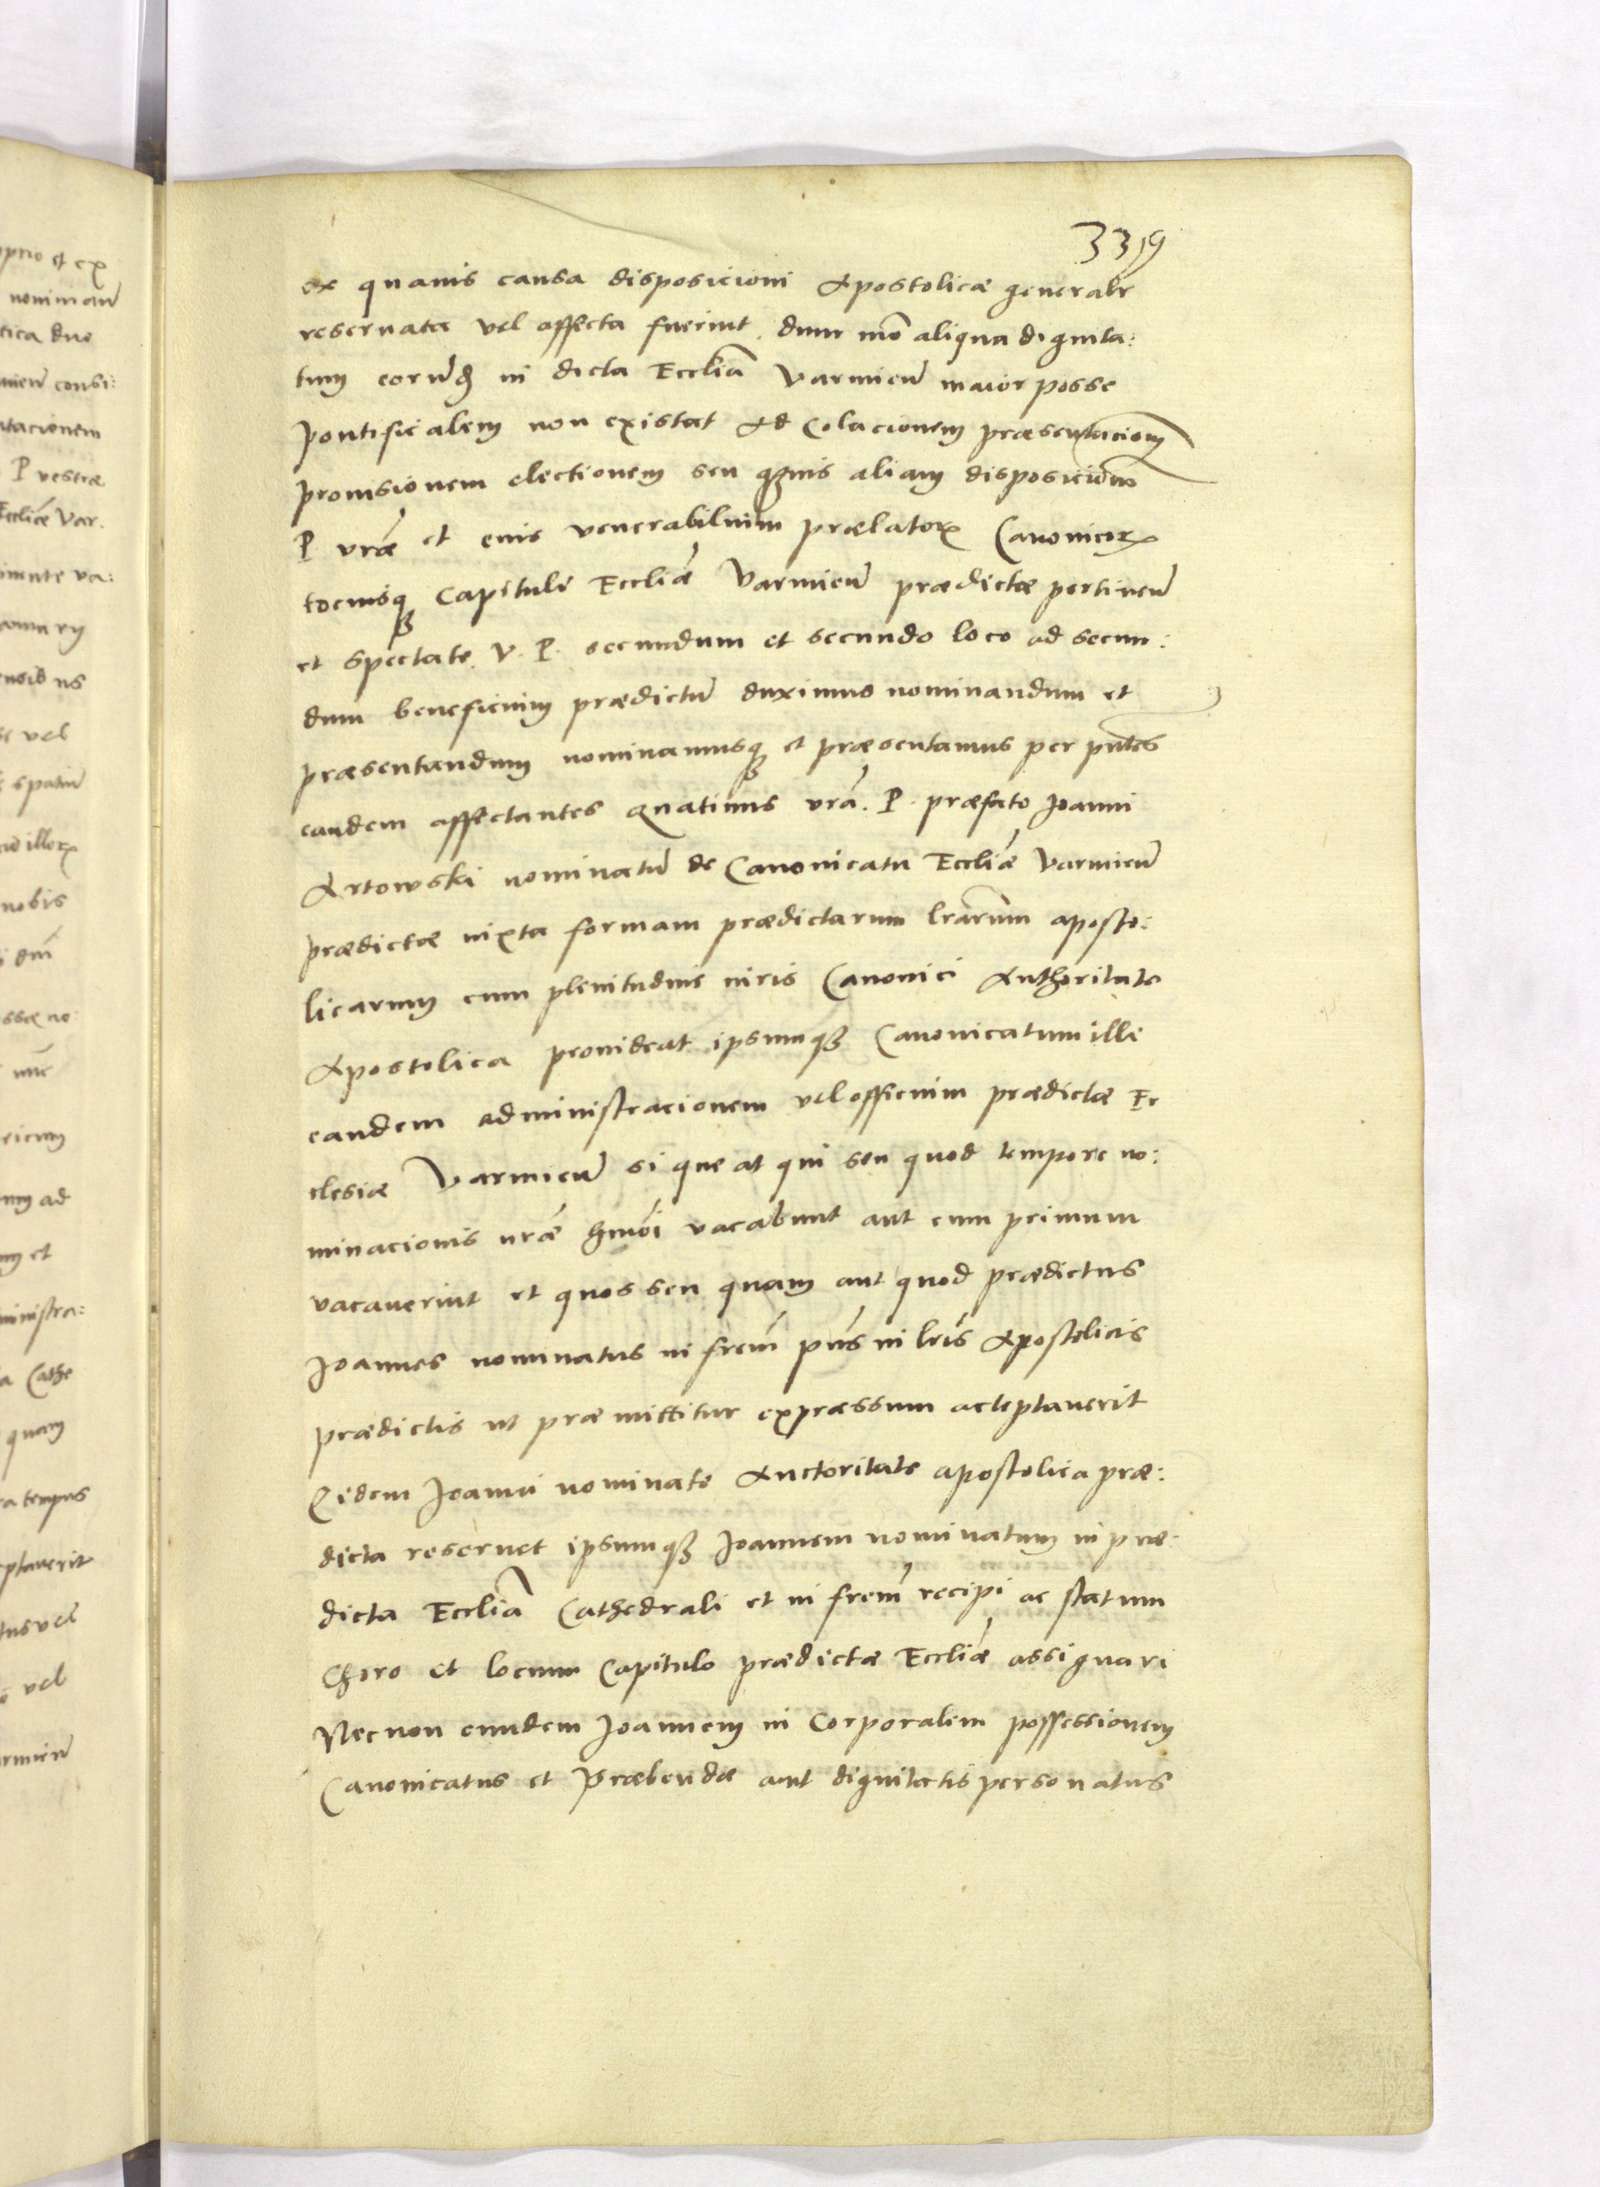 339
ex quauis causa disposicioni Apostolicæ generalr
reseruata vel affecta fuerint dum mo͠ aliqua dignita:
tum eorund in dicta Eccliâ Varmieñ maior posse
pontificalem non existat Ad Colacionem præsentaciom̃
prouisionem electionem seu quis aliam disposiciom̃
P vr̃æ et eius venerabilium prælatorꝝ Canonicorꝝ
tociusqꝫ Capituli Eccliæ Varmieñ prædictæ pertineñ
et spectate V. P. secundum et secundo loco ad secun:
dum beneficium prædictũ duximus nominandum et
præsentandum nominamusqꝫ et præsentamus per pñtes
eandem affectantes quatinus vr̃a. P. præfato Joanni
Artowski nominatũ de Canonicatu Eccliæ Varmieñ
prædictæ iuxta formam prædictarum lr̃arum aposto:
licarum cum plenitudinis iuris Canonici Authoritate
Apostolica prouideat ipsumqꝫ Canonicatum illi
eandem administracionem vel officium prædictæ Ec
clesiæ Varmieñ si que at qui seu quod tempore no:
minacionis nr̃æ hmõi vacabunt aut cum primum
vacauerint et quos seu quam aut quod prædictus
Joannes nominatus in frem̃ pñs in lr̃is Apostolicis
prædictis ut præmittitur expræssum acceptauerit
Eidem Joanni nominato Auctoritate apostolica præ:
dicta reseruet ipsumqꝫ Joannem nominatum in præ:
dicta Eccliã Cathedrali et in frem̃ recipi ac statum
Choro et locum Capitulo prædictæ Eccliæ assignari
Necnon eundem Joannem in Corporalem possessionem
Canonicatus et Præbendæ aut dignitatis personatus